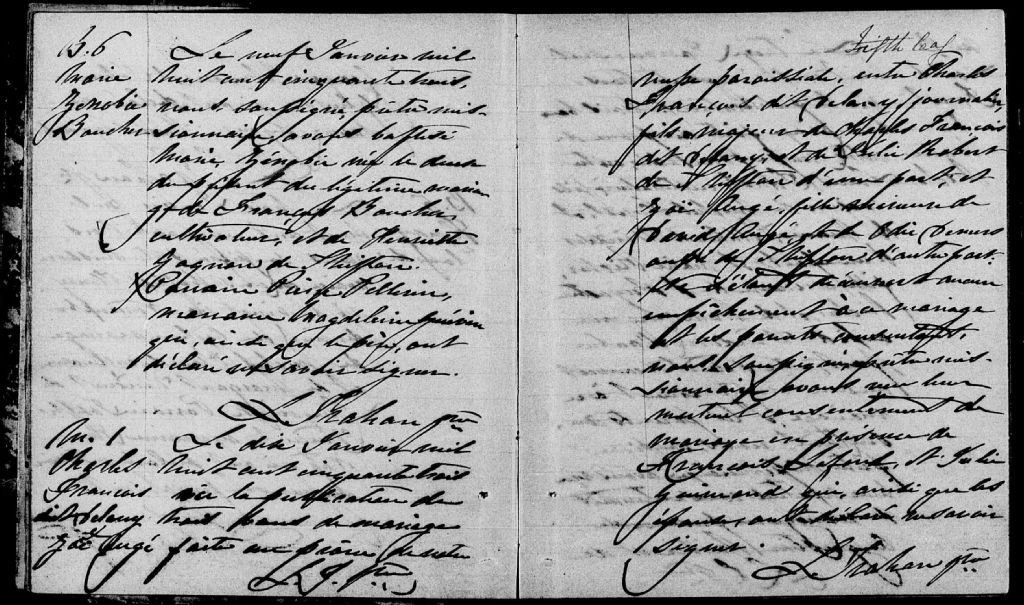 B. 6
Marie
Zénobie
Boucher
Le neuf Janvier mil
huit cent cinquante trois,
nous, soussigné, prêtre mis-
sionnaire, avons baptisé
Marie, Zénobie née le deux
du présent du légitime maria
ge de François Boucher,
cultivateur, et de Henriette
Gagnon de Stiffton.
Parrain Pierre Pellerin,
marraine Magdeleine
qui, ainsi que le père, ont
déclaré ne savoir signer.
L Trahan ptre
M. 1
Charles
François
dit Delany
Zoë Augé
Le dix Janvier mil
huit cent cinquante trois
vu la publication de
trois bans de mariage
faite au prône de notre
L. T. Ptre
Fifth leaf
messe paroissiale, entre Charles
François dit Delany, journalier,
fils majeur de Charles François
dit Delany, et de Julie Robert
de Stiffton d'une part, et
Zoë Augé, fille mineure de
David Augé et de Odie Demers
aussi de Stiffton d'autre part.
Ne s'étant découvert aucun
empêchement à ce mariage
et les parents consentant,
nous, soussigné, prêtre mis-
sionnaire, avons reçu leur
mutuel consentement de
mariage en présence de
François et Julie
Guimond qui, ainsi que les
époux, ont déclaré ne savoir
signer.
L Trahan ptre